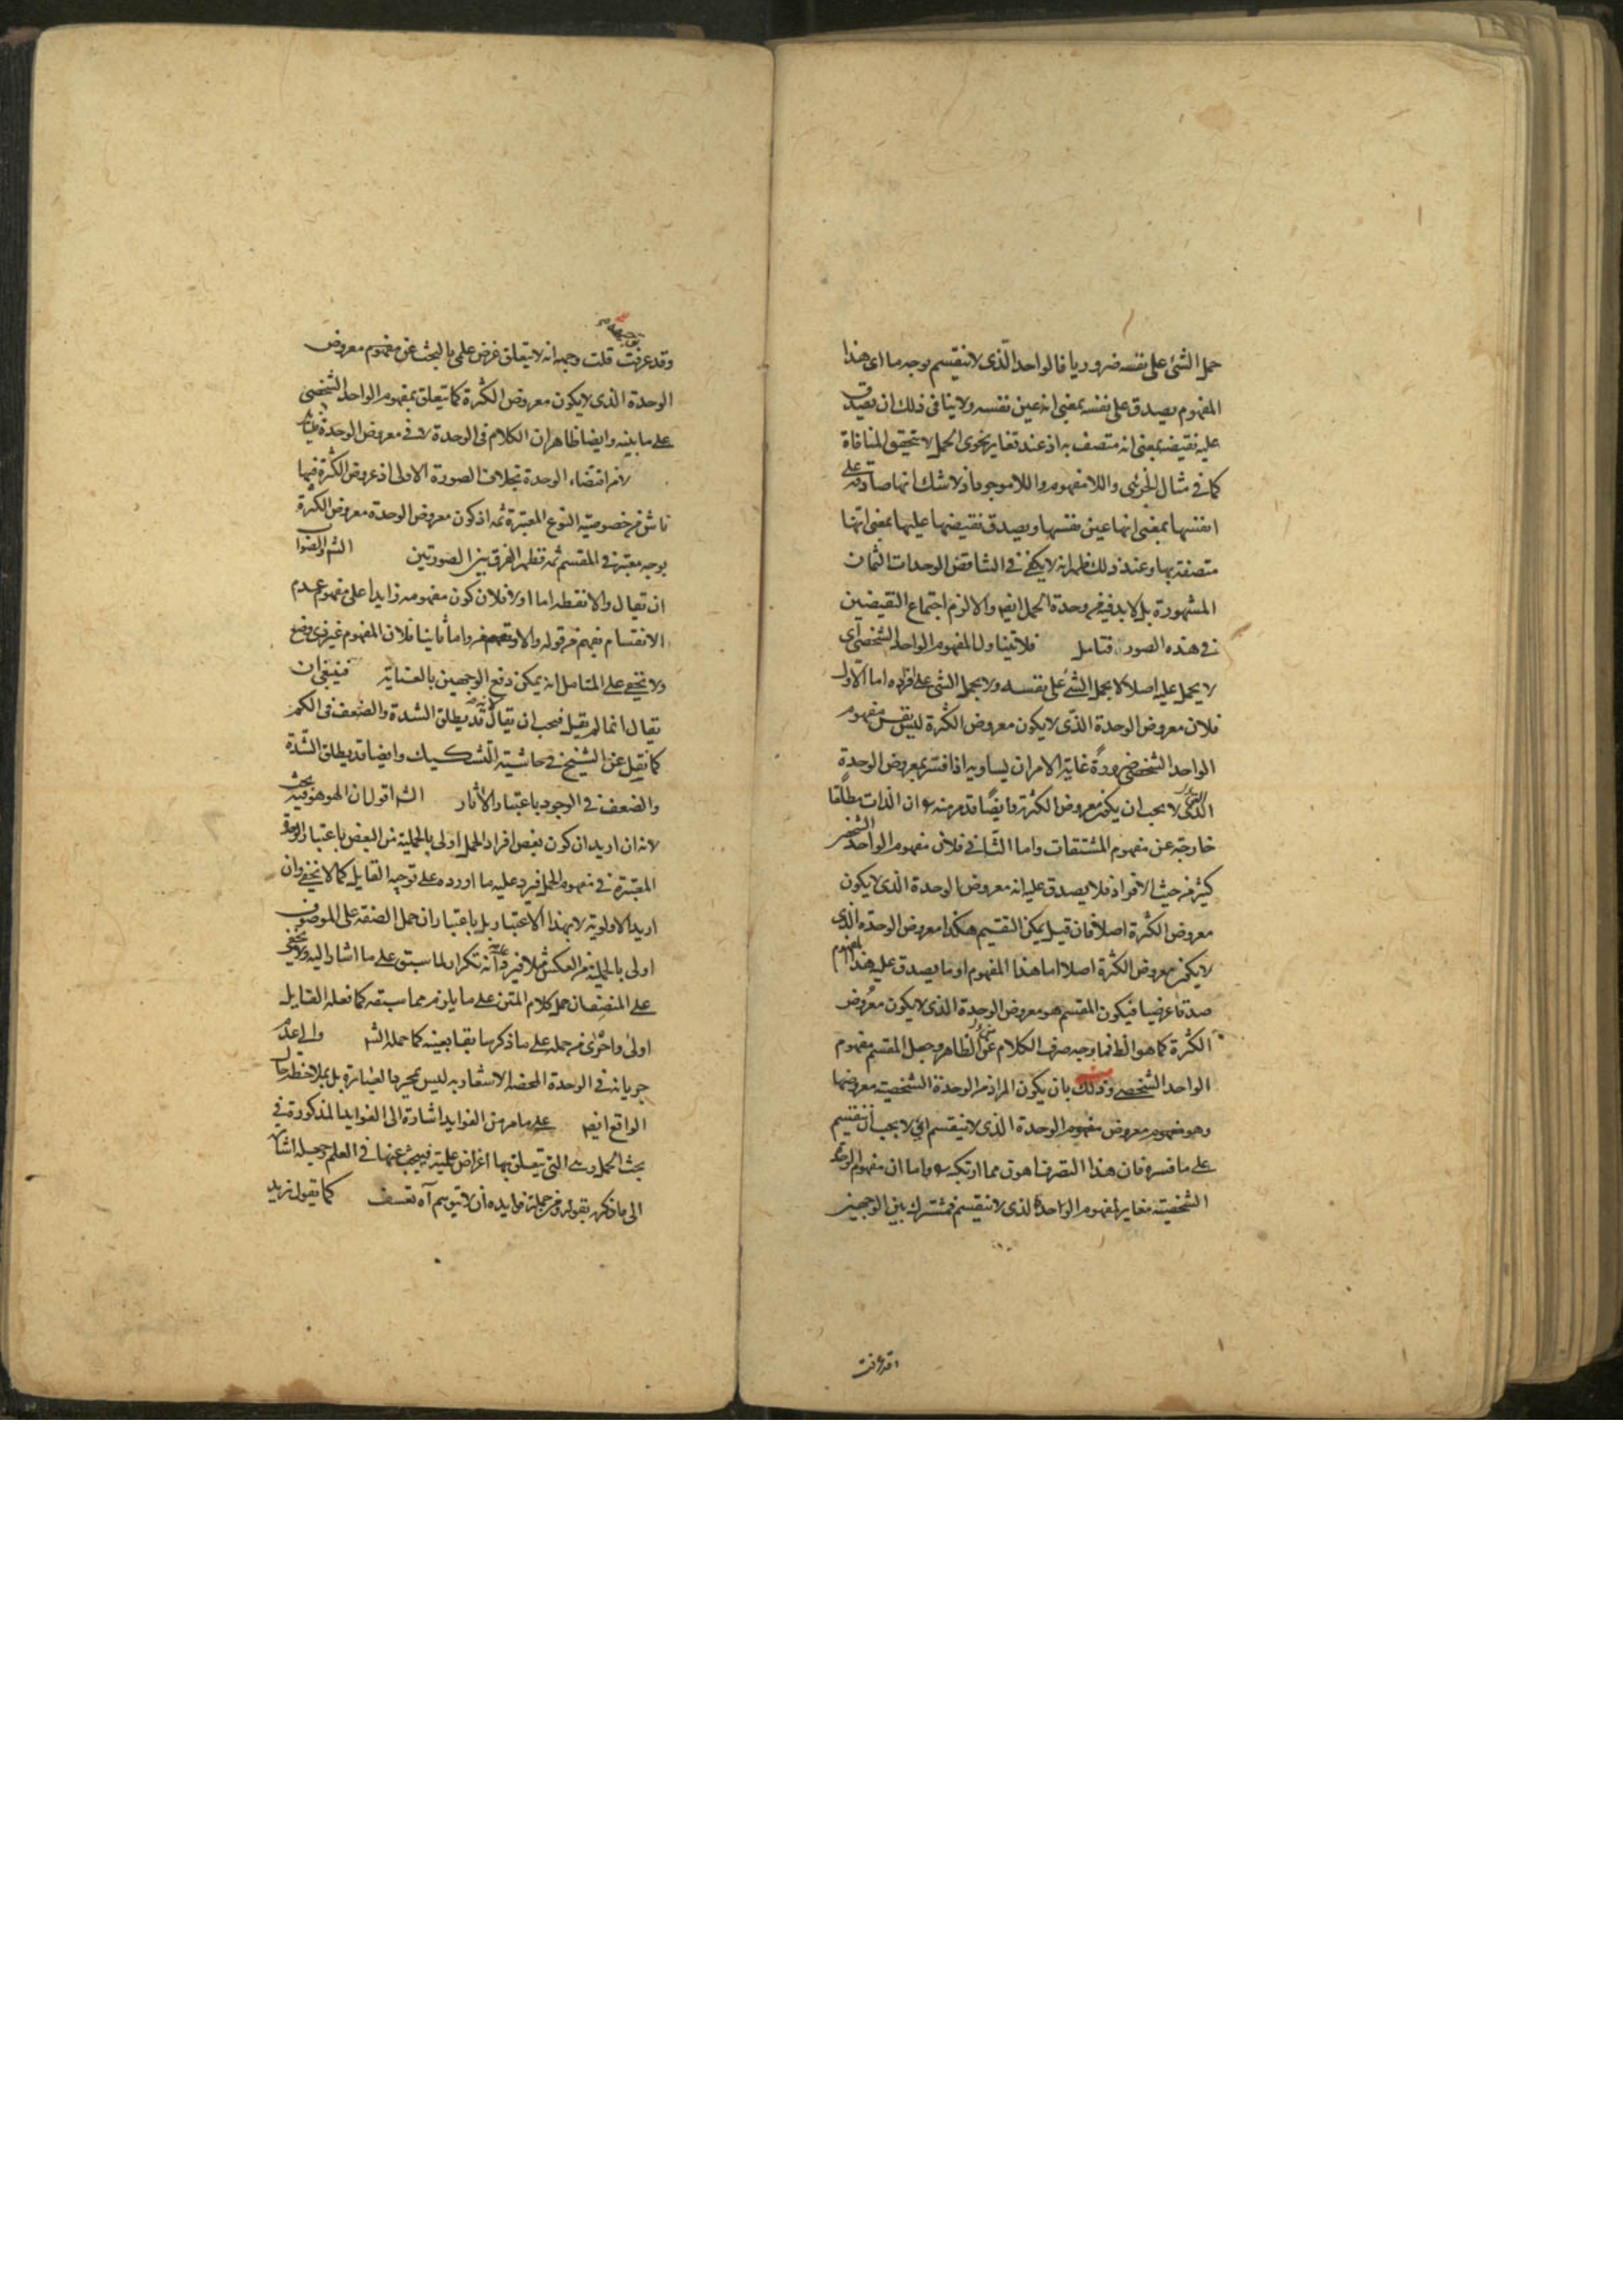 حمل الشئ على نفسه ضروريا فالواحد الذى لا ينقسم بوجه ما اى هذا
المفهوم يصدق على نفسه بمعنى انه عين نفسه ولا ينافى ذلك ان يصدق
عليه نقيضه بمعنى انه متصف به اذ عند تغاير نحوى الحمل لا يتحقق المنافاة
كما فى مثال الجزئى واللامفهوم واللاموجود اذ لا شك انها صادقة على
انفسها بمعنى انها عين نفسها ويصدق نقيضها عليها بمعنى انها
متصفة بها وعند ذلك ظهر انه لا يكفى فى التناقض الوحدات الثمان
المشهورة بل لابد فيه من وحدة الحمل ايضا والا لزم اجتماع النقيضين
فى هذه الصور فتامل فلا يتناول المفهوم الواحد الشخصى اى
لا يحمل عليه اصلا لا بحمل الشئ على نفسه ولا بحمل الشئ على افراده اما الاول
فلان معروض الوحدة الذى لا يكون معروض الكثرة ليس نفس مفهوم
الواحد الشخصى ضرورة غاية الامر ان يساويه اذا فسر بمعروض الوحدة
الذى لا يجب ان يكون معروض الكثرة وايضا قد مر منه ان الذات مطلقا
خارجة عن مفهوم المشتقات واما الثانى فلان مفهوم الواحد الشخصى
كثير من حيث الافراد فلا يصدق عليه انه معروض الوحدة الذى لا يكون
معروض الكثرة اصلا فان قيل يمكن التقسيم هكذا معروض الوحدة الذى
لا يكون معروض الكثرة اصلا اما هذا المفهوم او ما يصدق عليه هذا المفهوم
صدقا عرضيا فيكون المقسم هو معروض الوحدة الذى لا يكون معروض
الكثرة كما هو الظ فما وجه صرف الكلام عن الظاهر وجعل المقسم مفهوم
الواحد الشخصى وذلك بان يكون المراد من الوحدة الشخصية معروضها
وهو مفهوم معروض مفهوم الوحدة الذى لا ينقسم اى لا يجب ان ينقسم
على ما فسره فان هذا التصرف اهون مما ارتكبه واما ان مفهوم الوحدة
الشخصية مغاير لمفهوم الواحد الذى لا ينقسم فمشترك بين الوجهين
وقد عرفت
وقد عرفت توجيهه قلت وجهه انه لا يتعلق غرض علمى بالبحث عن مفهوم معروض
الوحدة الذى لا يكون معروض الكثرة كما يتعلق بمفهوم الواحد الشخصى
على ما بينه وايضا ظاهر ان الكلام فى الوحدة لا فى معروض الوحدة
لا من اقتضاء الوحدة بخلاف الصورة الاولى اذ عروض الكثرة فيها
ناش من خصوصية النوع المعتبرة ثمه اذ كون معروض الوحدة معروض الكثرة
بوجه معتبر فى المقسم ثمه فظهر الفرق بين الصورتين الشم والصواب
ان يقال والا نقطه اما اولا فلان كون مفهومه زايدا على مفهوم عدم
الانقسام يفهم من قوله والا واما ثانيا فلان المفهوم غير ذى وضع
ولا يخفى على المتامل انه يمكن دفع الوجهين بالعناية فينبغى ان
يقال انما لم يقيل فيجب ان يقال لانه قد يطلق الشدة والضعف فى الكم
كما نقل عن الشيخ فى حاشية التشكيك وايضا قد يطلق الشدة
والضعف فى الوجود باعتبار الآثار الشم اقول ان الهوهو فيه بحث
لانه ان اريد ان كون بعض افراد الحمل اولى بالحملية من البعض باعتبار الوحدة
المعتبرة فى مفهوم الحمل فيرد عليه ما اورده على توجيه القايل كما لا يخفى وان
اريد الاولوية لا بهذا الاعتبار بل باعتبار ان حمل الصفة على الموصوف
اولى بالحملية من العكس مثلا فيرد عليه انه تكرار لما سبق على ما اشار اليه ولا يخفى
على المنصف ان حمل كلام المتن على ما يلزم مما سبقه كما فعله القايل
اولى واحرى من حمله على ما ذكر سابقا بعينه كما حمله الشم والى عدم
جريانه فى الوحدة المحضة الاشعار به ليس بمجرد العبارة بل بملاحظة حال
الواقع ايضا على ما مر من الفوايد اشارة الى الفوايد المذكورة فى
بحث الحمل وهى التى يتعلق بها اغراض علمية فيبحث عنها فى العلم وجعله اشارة
الى ما ذكره بقوله ومن جملة فوايده ان لا يتوهم آه تعسف كما يقول زيد